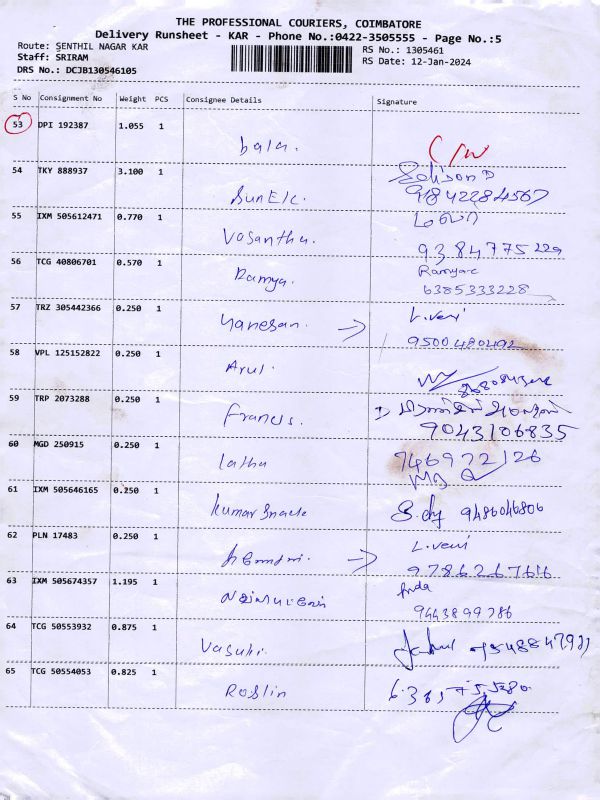 THE PROFESSIONAL COURIERS, COIMBATORE
Delivery Runsheet - KAR - Phone No.:0422-3505555 - Page No.:5
Route: SENTHIL NAGAR KAR
RS No.: 1305461
Staff: SRIRAM
RS Date: 12-Jan-2024
DRS No.: DCJB130546105
S No Consignment No Weight PCS Consignee Details Signature
53 DPI 192387 1.055 1
bala. C/W
54 TKY 888937 3.100 1
SunElc. Edison D
9184 2284567
55 IXM 505612471 0.770 1
Vasantha.
9384775229
56 TCG 40806701 0.570 1
Ramya. Ramya
6385333228
57 TRZ 305442366 0.250 1
Ganesan. L.veni
9500480492
58 VPL 125152822 0.250 1
Arul.
59 TRP 2073288 0.250 1
Francis.
9043106835
60 MGD 250915 0.250 1
latha 746972 126
61 IXM 505646165 0.250 1
kumar snack 9486046806
62 PLN 17483 0.250 1
L.veni
63 IXM 505674357 1.195 1
9443899786
64 TCG 50553932 0.875 1
Vasuki.
65 TCG 50554053 0.825 1
Roslin